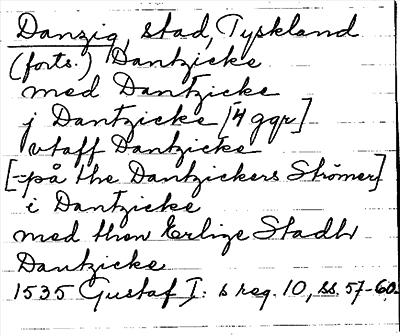 Danzig, stad, Tyskland
(forts.) Dantzicke
med Dantzicke
j Dantzicke [4 ggr]
vtaff Dantzicke
[=på the Dantzickers Strömer]
i Dantzicke
med then Erlige Stadh
Dantzicke
1535 Gustaf I: s reg. 10, ss. 57-60.